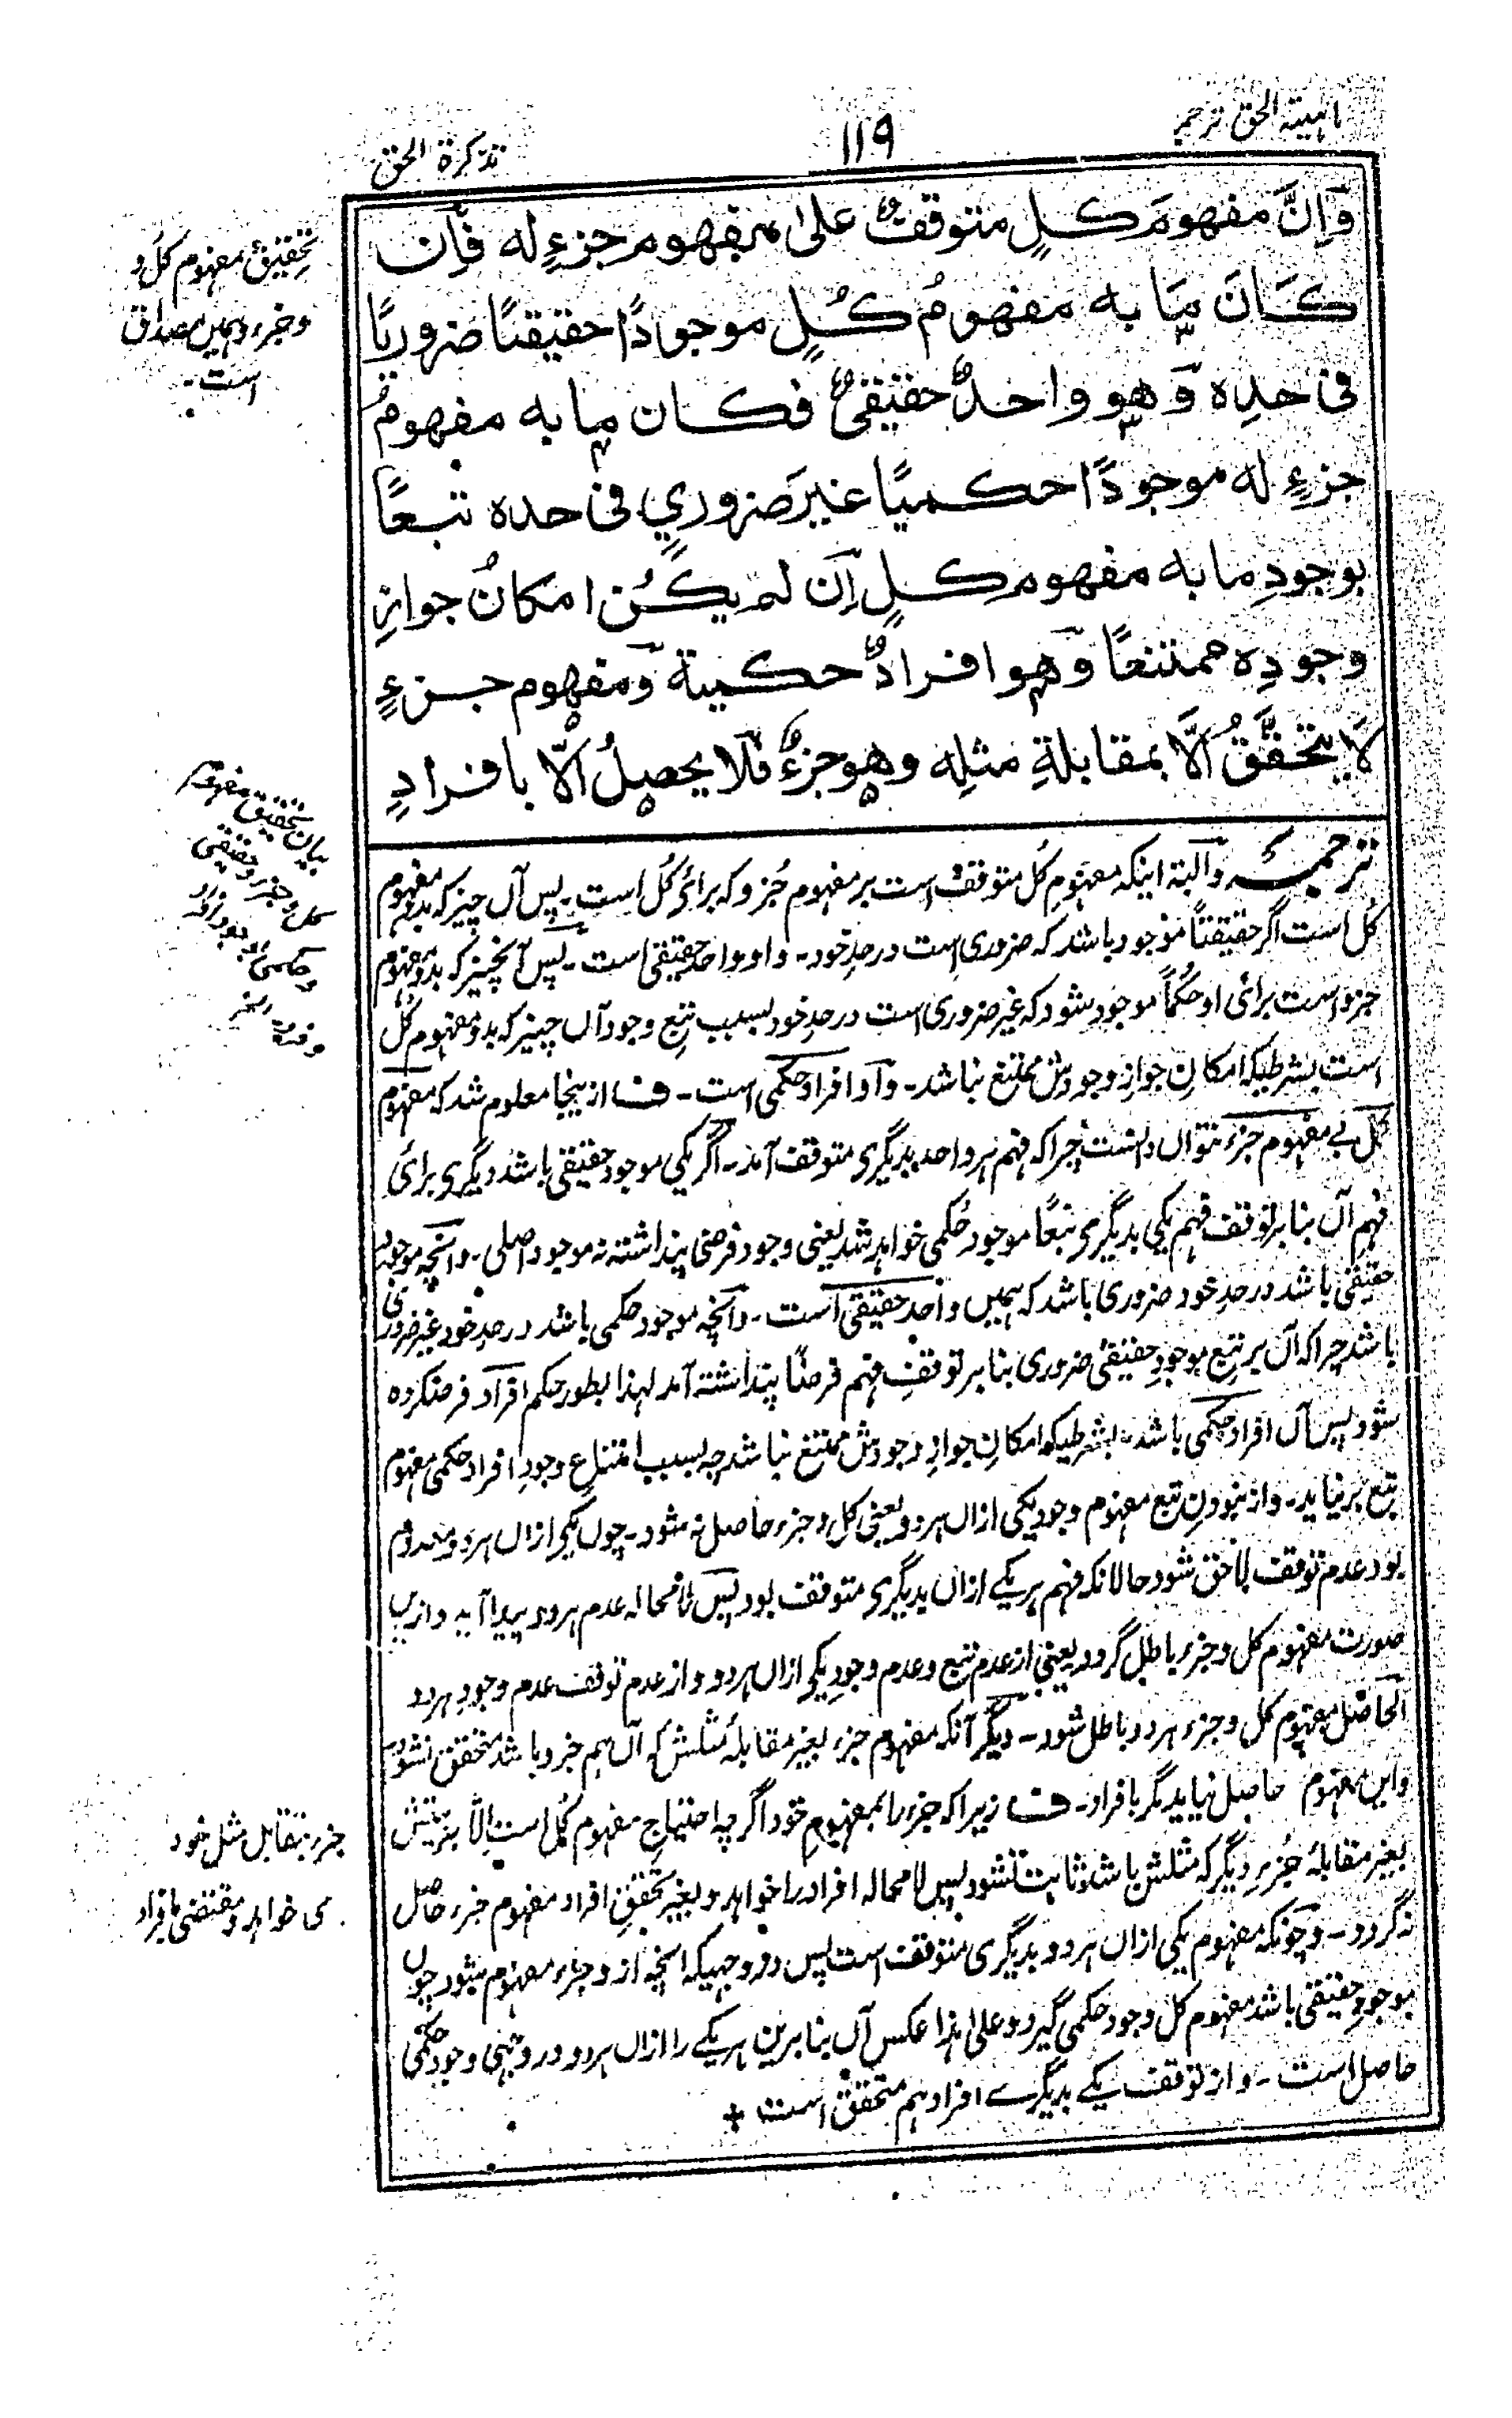 ماہیتہ الحق ترجمہ
۱۱۹
تذکرۃ الحق
وَاِنَّ مفهومَ كلٍ متوقفٌ علىٰ مفهوم جزءٍ له فان
كَانَ مَا به مفهومُ كُلٍ موجودًا حقيقتًا ضروريًا
فی حدِه وَهو واحدٌ حقیقیٌ فكان ما به مفهومُ
جزءٍ له موجودًا حكميًا غيرَ ضروريٍ فی حده تبعًا
بوجودِ ما به مفهوم كلٍ اِن لم يكُن امكانُ جوازِ
وجودِه ممتنعًا وَهو افرادٌ حكمية وَمفهوم جزءٍ
لَا يتحقَّقُ اَلَّا بمقابلةِ مثلِه وهو جزءٌ فَلا يحصلُ اَلّا بافرادٍ
تحقیق مفہوم کل و
وجزء وہمیں مصداق
است۔
بیان تحقیق مفہوم
کل و جزء حقیقی
ترجمہ والبتہ اینکہ مفہومِ کُل متوقف است بر مفہوم جُزو کہ برائ کُل است۔ پس آں چیز کہ بدو مفہوم
کُل است اگر حقیقتًا موجود باشد کہ ضروری است در حدِ خود۔ واو واحد حقیقی است۔ پس آنچیز کہ بدو مفہوم
جزو است برائی او حُکماً موجود شود کہ غیر ضروری است در حدِ خود بسبب تبع وجود آں چیز کہ بدو مفہوم کُل
است بشرطیکہ امکانِ جوازِ وجودش ممتنع نباشد۔ و آو افراد حکمی است۔ ف از ینجا معلوم شد کہ مفہوم
کل بے مفہوم جزء نتواں دانست چرا کہ فہم ہر واحد بدیگری متوقف آمد۔ اگر یکی موجود حقیقی باشد دیگری برائ
فہم آں بنا بر توقف فہم یکی بدیگری تبعًا موجود حُکمی خواہد شد یعنی وجود فرضی پنداشتہ نہ موجود اصلی۔ و آنچہ موجود
حقیقی باشد در حدِ خود ضروری باشد کہ ہمیں واحد حقیقی است۔ و آنچہ موجود حکمی باشد در حدِ خود غیر ضروری
باشد چرا کہ آں بر تبع موجودِ حقیقیٔ ضروری بنا بر توقفِ فہم فرضًا پنداشتہ آمد لہذا بطور حکم افراد فرض کردہ
شود پس آں افراد حکمی باشد۔ بشرطیکہ امکانِ جوازِ وجودش ممتنع نباشد چہ بسبب امتناعِ وجودِ افراد حکمی مفہوم
تبع بر نیاید۔ و از نبودنِ تبع مفہوم وجود یکی ازاں ہر دو یعنی کل و جزء حاصل نہ شود۔ چوں یکی ازاں ہر دو معدوم
بود عدم توقف لاحق شود حالانکہ فہم ہر یکے ازاں بدیگری متوقف بود پس لامحالہ عدم ہر دو پیدا آید و ازیں
صورت مفہوم کل و جزء باطل گردد یعنی از عدم تبع و عدم وجودِ یکی ازاں ہر دو و از عدم توقف عدم وجودِ ہر دو
الحاصل مفہوم کل و جزء ہر دو باطل شود۔ دیگر آنکہ مفہوم جزء بغیر مقابلۂ مثلش کہ آں ہم جزو باشد متحقق نشود
و این مفہوم حاصل نیاید مگر با افراد۔ ف زیرا کہ جزء را بمفہومِ خود اگرچہ احتیاجِ مفہوم کُل است اِلّا
بغیر مقابلۂ جُزءِ دیگر کہ مثلش باشد ثابت نشود پس لامحالہ افراد را خواہد و بغیر تحقق افراد مفہوم جزء حاصل
نگردد۔ و چونکہ مفہوم یکی ازاں ہر دو بدیگری متوقف است پس در وجہیکہ آنچہ از و جزء مفہوم شود چوں
موجودِ حقیقی باشد مفہوم کل وجود حکمی گیرد و علیٰ ہذا عکس آں بنا برین ہر یکے را ازاں ہر دو در وجہی وجود حکمی
حاصل است۔ و از توقف یکے بدیگرے افراد ہم متحقق است +
جزء بمقابل مثل خود
می خواہد و مقتضی افراد